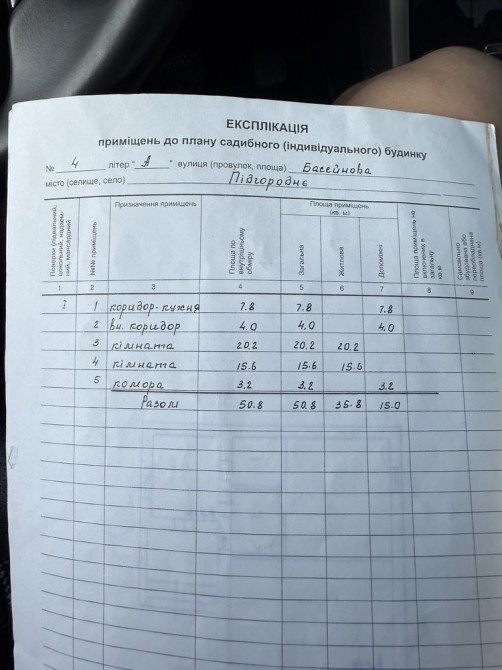 ЕКСПЛІКАЦІЯ
приміщень до плану садибного (індивідуального) будинку
№ 4 літер "А" вулиця (провулок, площа) Басейнова
місто (селище, село) Підгороднє
Поверхи (підвальний, цокольний, надземний, мансардний)
№№ приміщень
Призначення приміщень
Площа по внутрішньому обміру
Площа приміщень (кв. м)
Загальна
Житлова
Допоміжні
Площа приміщень не включених в загальну кв.м
Самовільно збудована або переобладнана площа (кв. м)
1 2 3 4 5 6 7 8 9
1 1 коридор-кухня 7.8 7.8 7.8
2 вн. коридор 4.0 4.0 4.0
3 кімната 20.2 20.2 20.2
4 кімната 15.6 15.6 15.6
5 комора 3.2 3.2 3.2
Разом 50.8 50.8 35.8 15.0